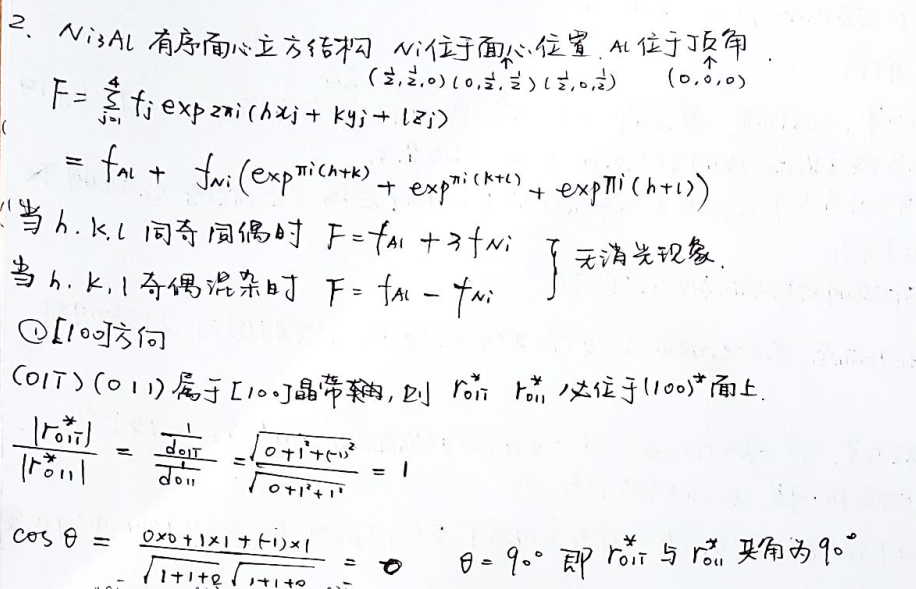 2、Ni₃Al 有序面心立方结构 Ni位于面心位置. Al 位于顶角.
↑ ↑
(½,½,0) (0,½,½) (½,0,½) (0,0,0)
F = Σ⁴ⱼ₌₁ fⱼ exp2πi(hxⱼ + kyⱼ + lzⱼ)
= f_Al + f_Ni (exp^πi(h+k) + exp^πi(k+l) + expπi(h+l))
当 h.k.l 同奇同偶时 F = f_Al + 3f_Ni } 无消光现象.
当 h.k.l 奇偶混杂时 F = f_Al - f_Ni
① [100]方向
(01T̄) (011) 属于 [100]晶带轴, 则 r*₀₁₁̄ r*₀₁₁ 必位于(100)*面上.
|r*₀₁₁̄| / |r*₀₁₁| = (1/d₀₁₁̄) / (1/d₀₁₁) = √(0+1²+(-1)²) / √(0+1²+1²) = 1
cosθ = (0×0+1×1+(-1)×1) / (√(1+1+0) √(1+1+0)) = 0 θ=90° 即 r*₀₁₁̄ 与 r*₀₁₁ 夹角为90°